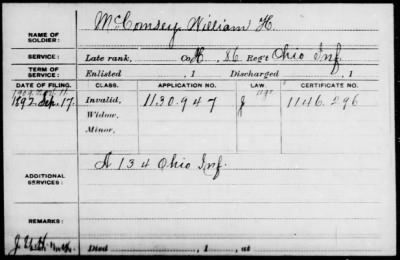 NAME OF SOLDIER: McComsey, William H.
SERVICE: Late rank, Co. H. 86 Reg't Ohio Inf.
TERM OF SERVICE: Enlisted , 1 Discharged , 1
DATE OF FILING. CLASS. APPLICATION NO. LAW. CERTIFICATE NO.
1892. Sep. 17. Invalid, 1130.947 J 1146.296
Widow,
Minor,
ADDITIONAL SERVICES: A 134 Ohio Inf.
REMARKS:
Died , 1 , at